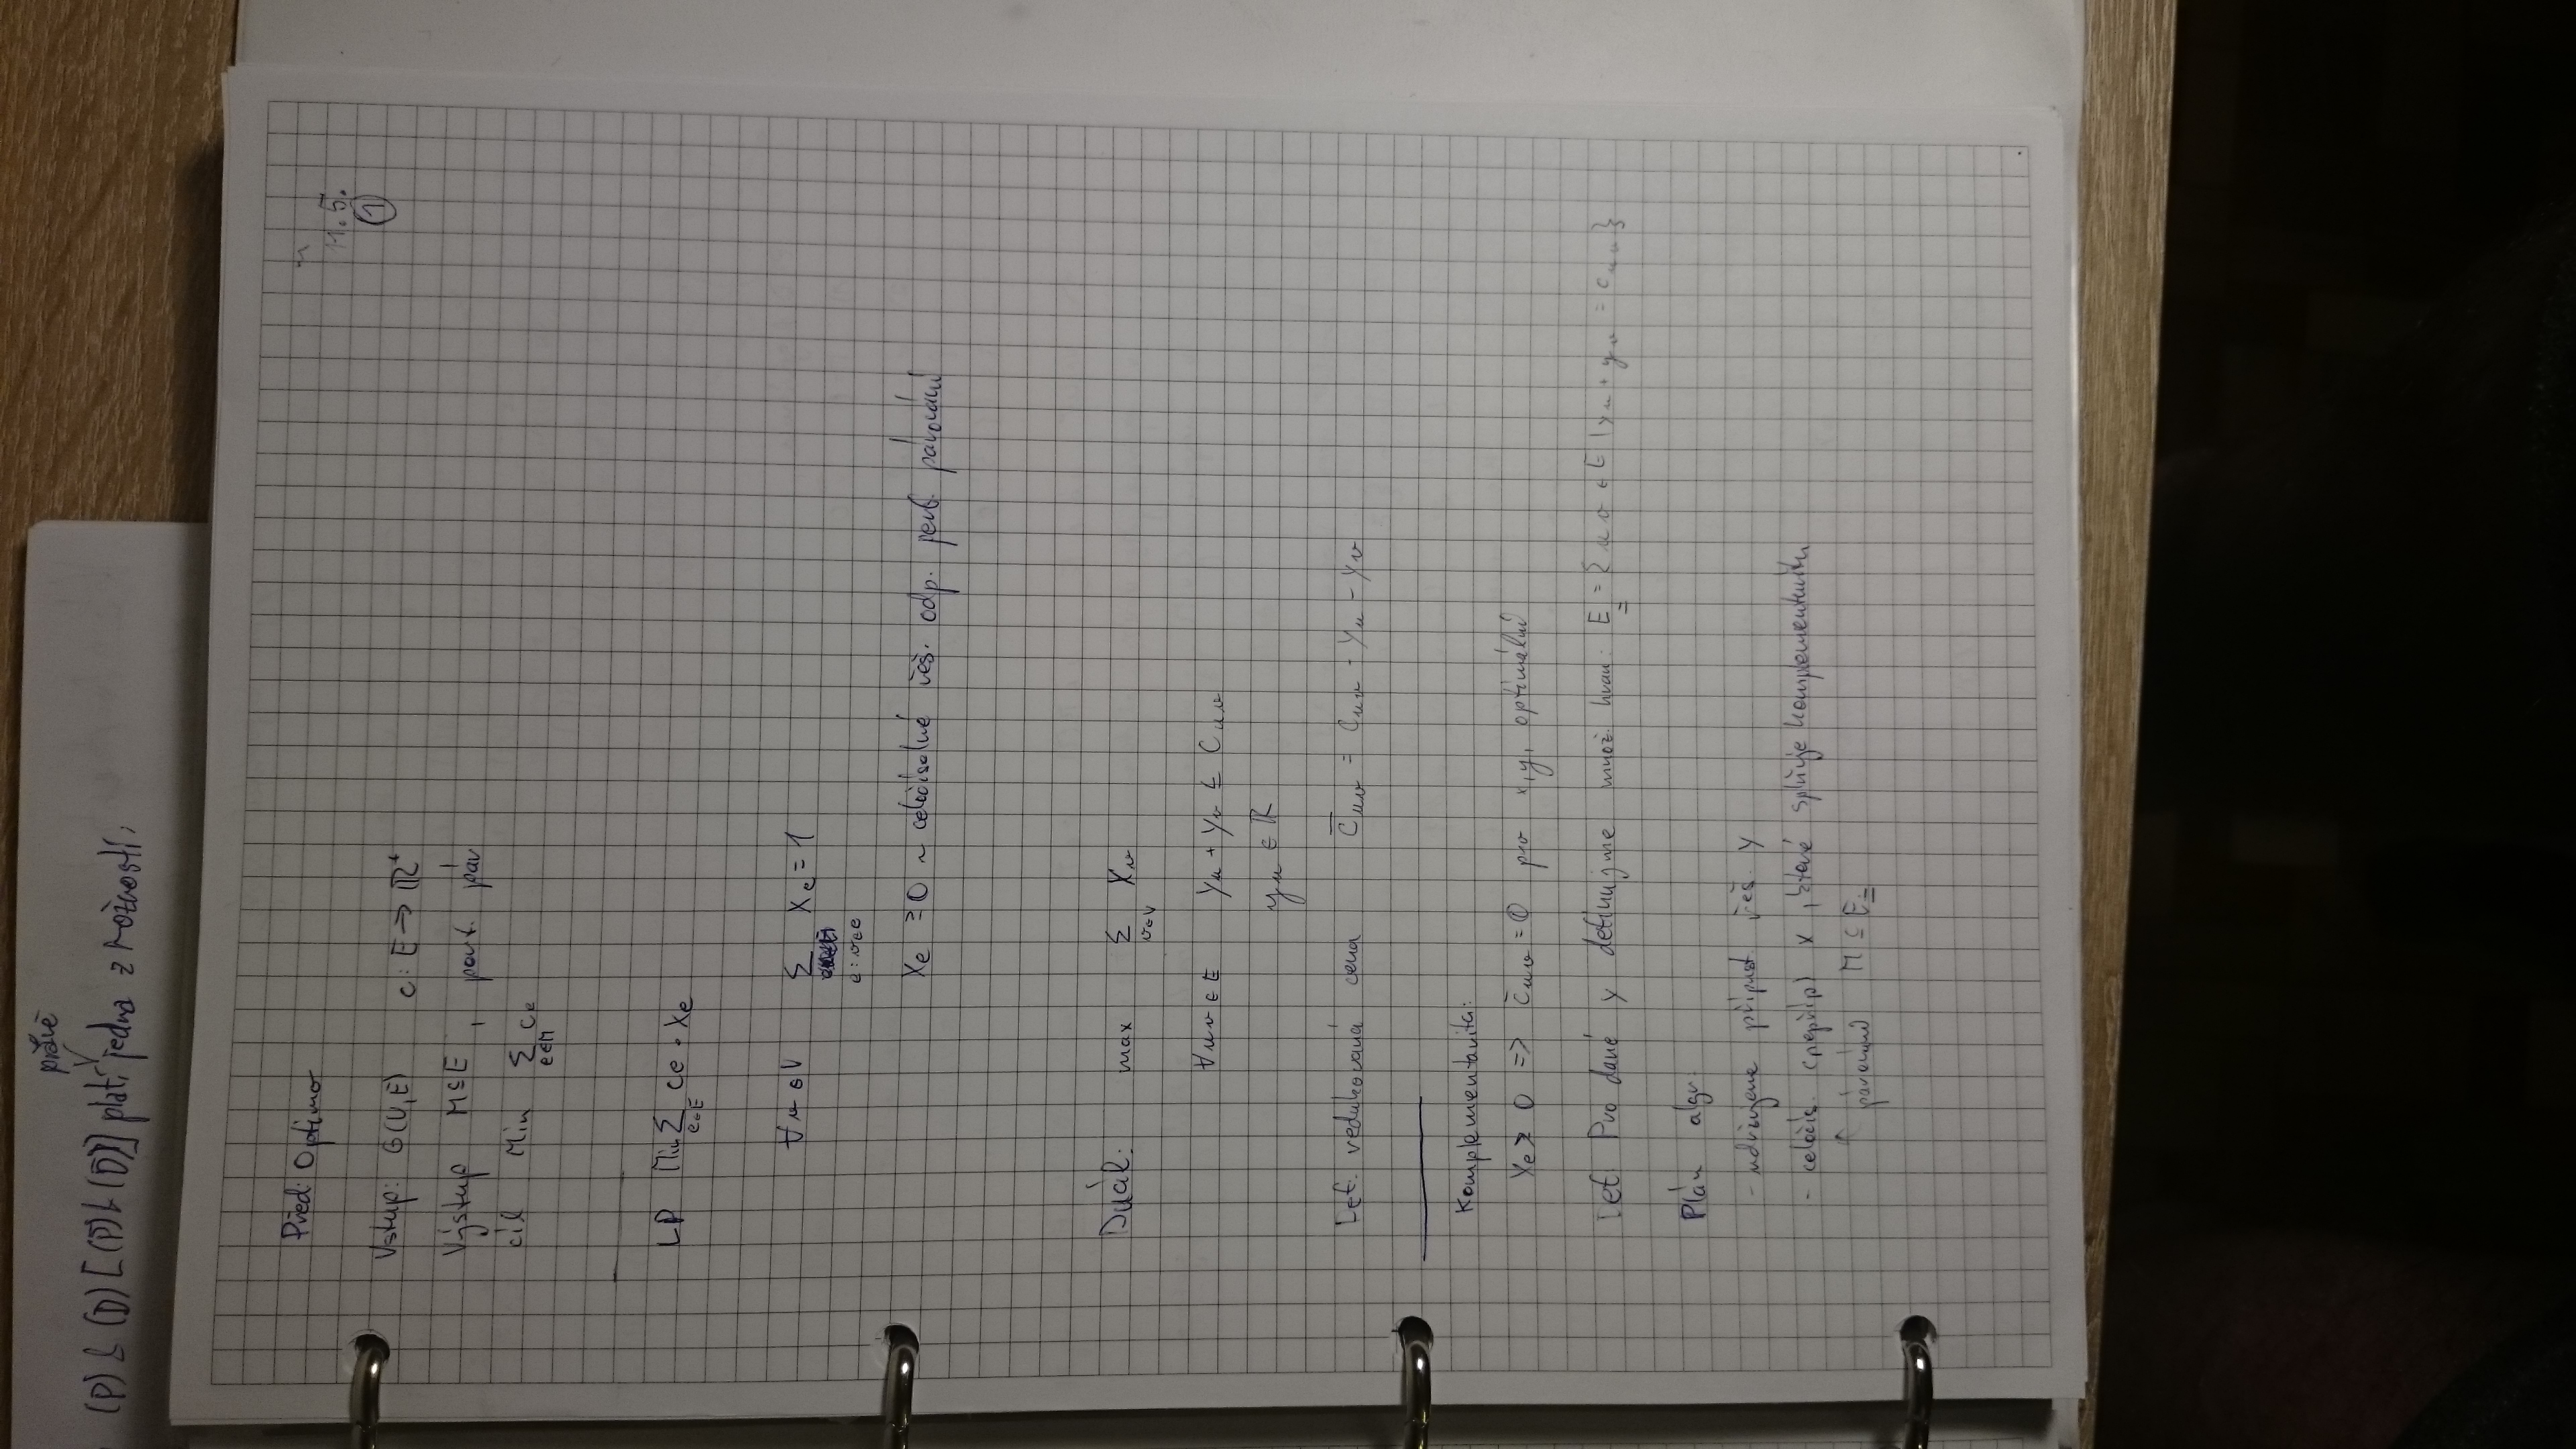 přavě
(P) & (D) [(P) & (D)] platí jedna z možností,
11.5.
①
Před: Optimo
Vstup: G(V,E) c: E → ℝ⁺
Výstup M ⊆ E , perf. pár
cíl Min Σ_{e∈M} c_e
LP Min Σ_{e∈E} c_e · x_e
∀v∈V Σ_{e: v∈e} x_e = 1
x_e ≥ 0 ~ celočíselné řeš. odp. perf. párování
Duál: max Σ_{v∈V} x_v
∀uv∈E y_u + y_v ≤ c_uv
y_u ∈ ℝ
Def. redukovaná cena c̄_uv = c_uv - y_u - y_v
Komplementarita:
x_e > 0 => c̄_uv = 0 pro x,y, optimální
Def. Pro dané y definujme množ. hran: E_= = { uv ∈ E | y_u + y_v = c_uv }
Plán alg.:
- udržujeme přípust. řeš. y
- celočís. (nepříp) x , které splňuje komplementaritu
↑ párování M ⊆ E_=